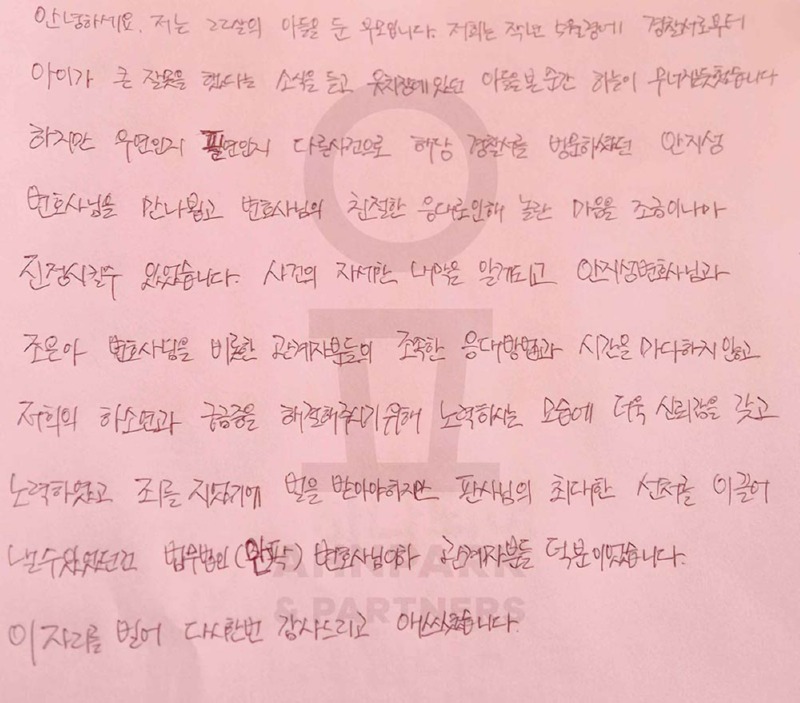 안녕하세요. 저는 22살의 아들을 둔 부모입니다. 저희는 작년 5월경에 경찰서로부터
아이가 큰 잘못을 했다는 소식을 듣고 유치장에 있던 아들을 본 순간 하늘이 무너지는듯했습니다
하지만 우연인지 필연인지 다른사건으로 해당 경찰서를 방문하셨던 안지성
변호사님을 만나뵙고 변호사님의 친절한 응대로인해 놀란 마음을 조금이나마
진정시킬수 있었습니다. 사건의 자세한 내막을 알게되고 안지성변호사님과
조은아 변호사님을 비롯한 관계자분들의 조속한 응대방법과 시간을 마다하지 않고
저희의 하소연과 궁금증을 해결해주시기위해 노력하시는 모습에 더욱 신뢰감을 갖고
노력하였고 죄를 지었기에 벌을 받아야하지만 판사님의 최대한 선처를 이끌어
낼수있었던건 법무법인(안팍) 변호사님이하 관계자분들 덕분이었습니다.
이 자리를 빌어 다시한번 감사드리고 애쓰셨습니다.
AHNPARK
& PARTNERS